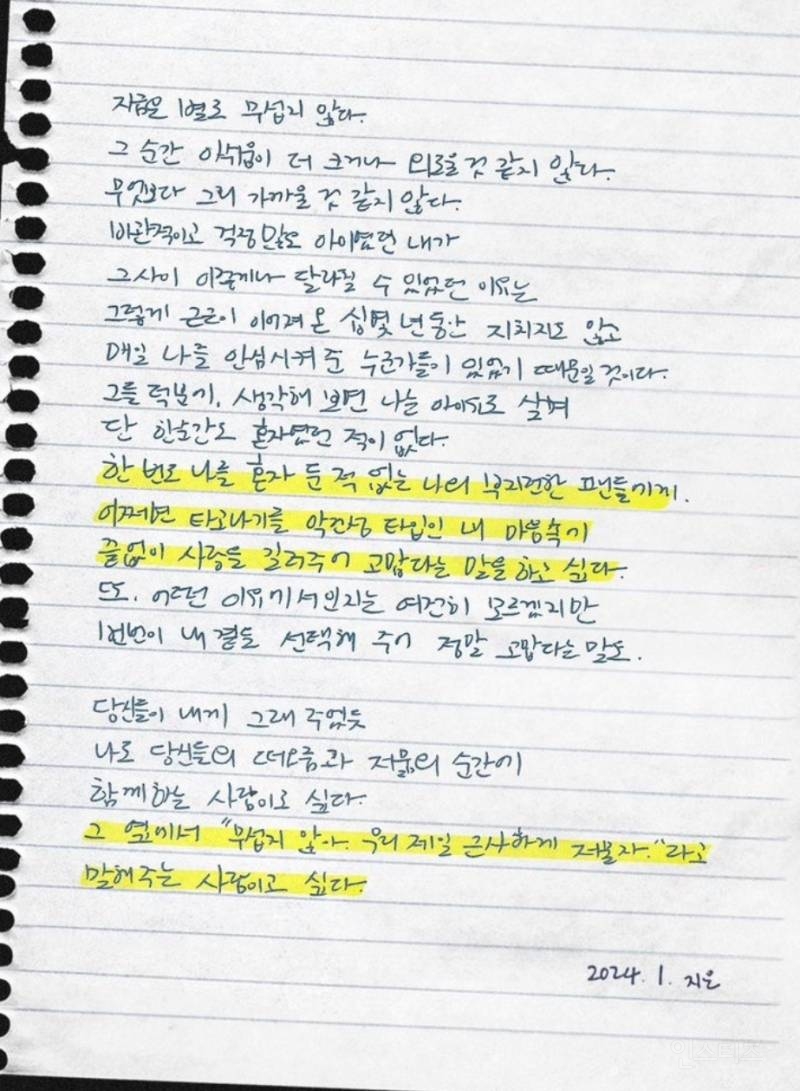 지금은 별로 무섭지 않다.
그 순간 아쉬움이 더 크거나 외로울 것 같지 않다.
무엇보다 그리 가까울 것 같지 않다.
비관적이고 걱정 많은 아이였던 내가
그 사이 이렇게나 달라질 수 있었던 이유는
그렇게 근근이 이어져 온 십몇 년 동안 지치지도 않고
매일 나를 안심시켜 준 누군가들이 있었기 때문일 것이다.
그들 덕분에, 생각해 보면 나는 아이유로 살며
단 한순간도 혼자였던 적이 없다.
한 번도 나를 혼자 둔 적 없는 나의 부지런한 팬들에게.
어쩌면 타고나기를 악건성 타입인 내 마음속에
끝없이 사랑을 길러주어 고맙다는 말을 하고 싶다.
또, 어떤 이유에서인지는 여전히 모르겠지만
번번이 내 곁을 선택해 주어 정말 고맙다는 말도.
당신들이 내게 그래 주었듯
나도 당신들의 떠오름과 저묾의 순간에
함께하는 사람이고 싶다.
그 옆에서 "무섭지 않아. 우리 제일 근사하게 저물자." 라고
말해주는 사람이고 싶다.
2024. 1. 지은
인스티즈